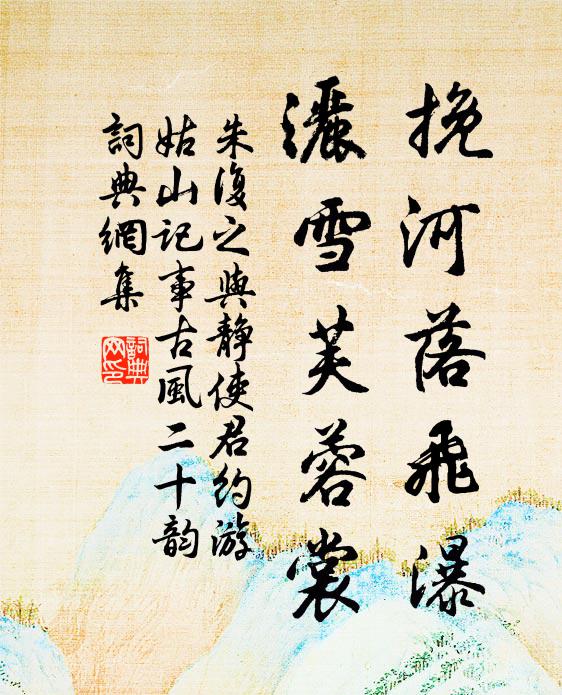 挽河落飛瀑
灑雪芙蓉裳
朱復之與静使君約游
姑山记事古風二十韵
詞典網集
詞典
网印